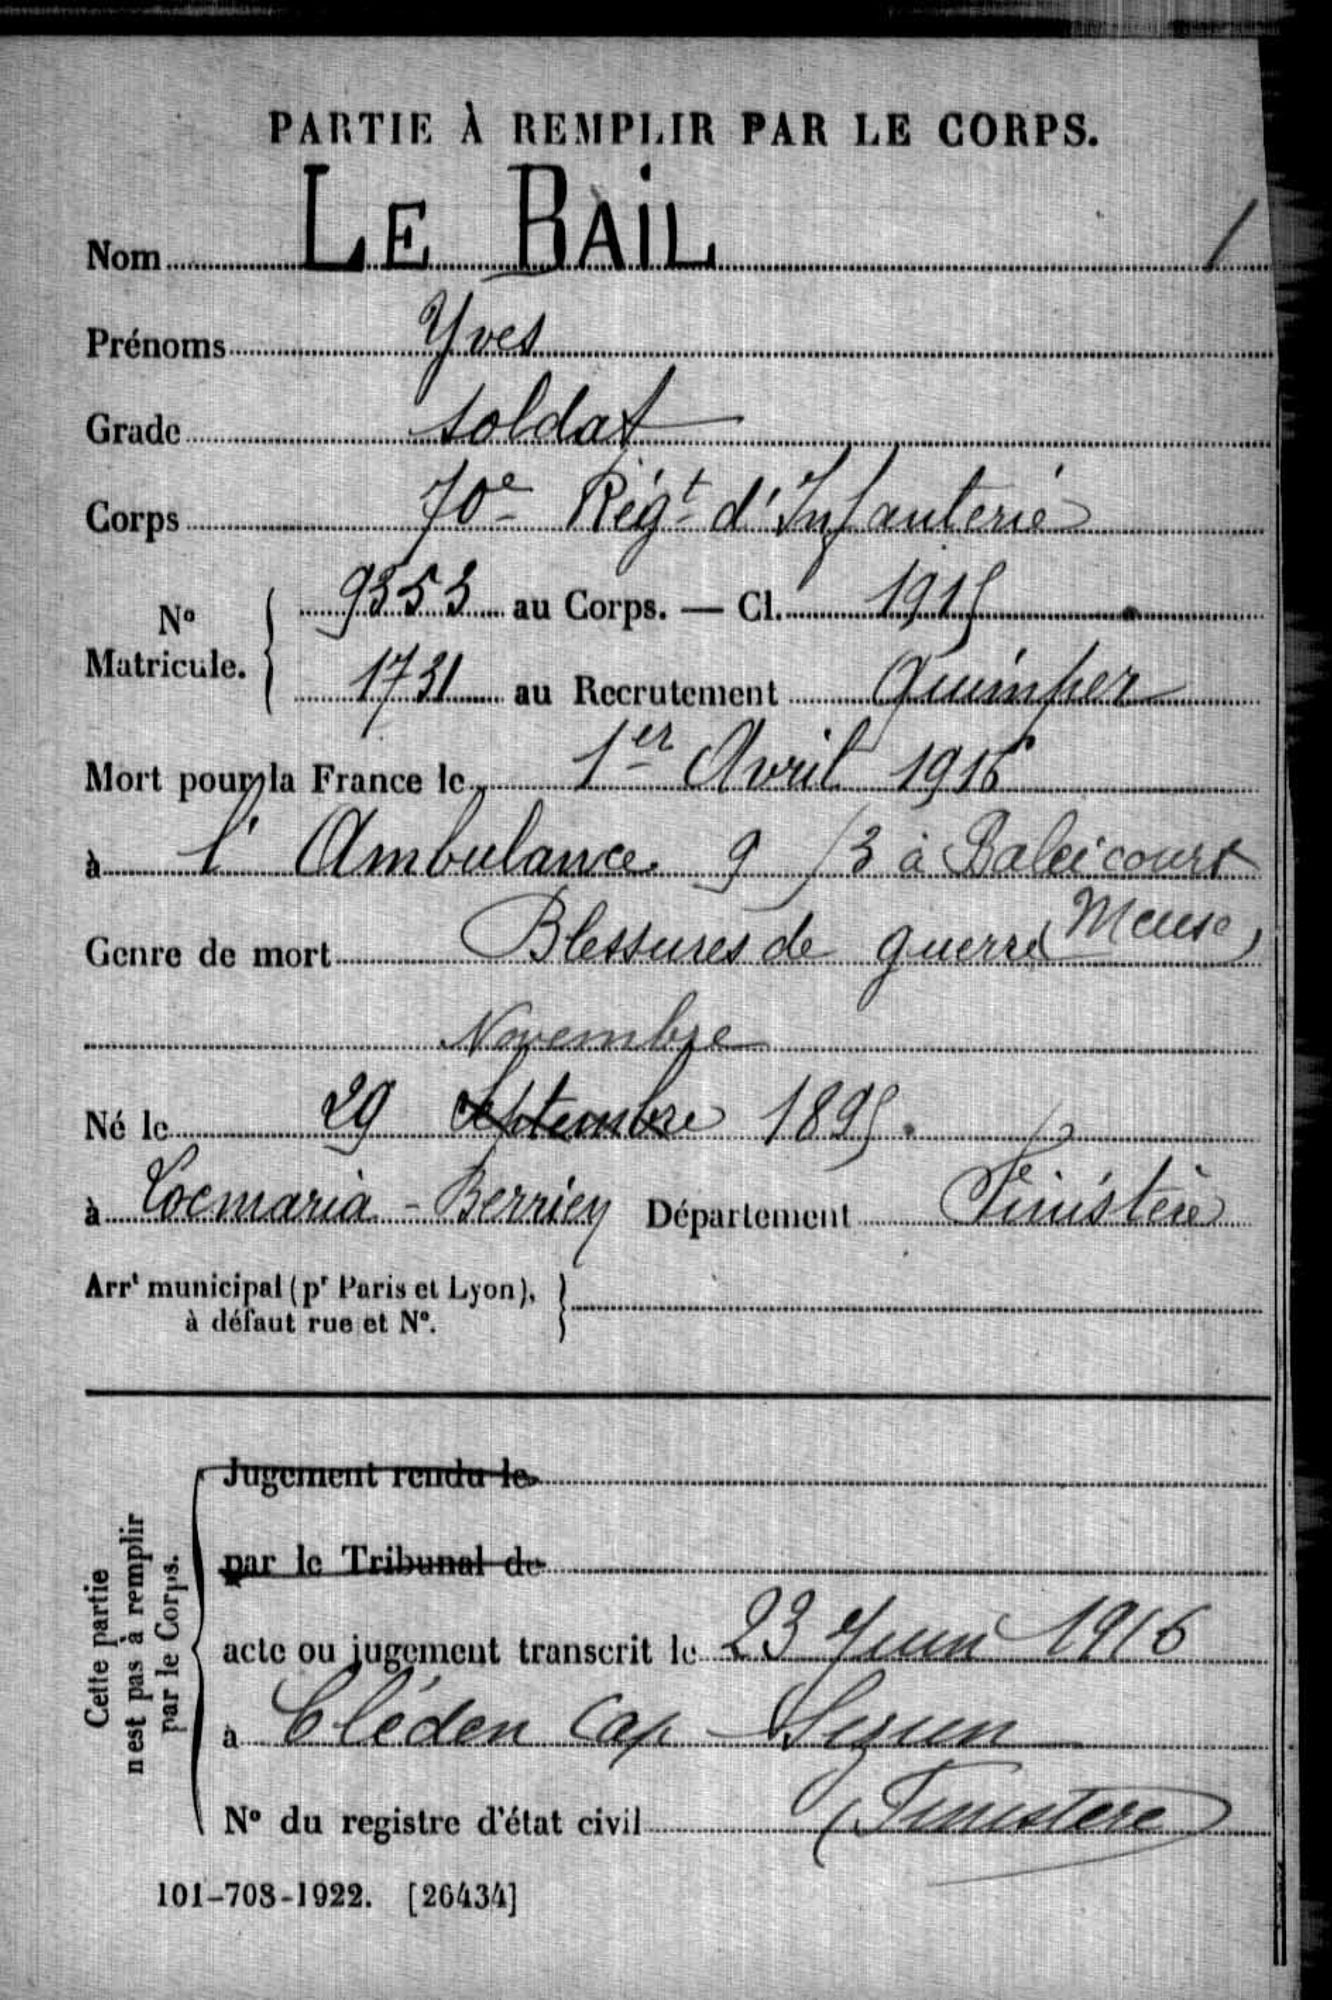 PARTIE À REMPLIR PAR LE CORPS.
Nom LE BAIL 1
Prénoms Yves
Grade soldat
Corps 70e Régt d'Infanterie
No Matricule. 9353 au Corps. — Cl. 1915
1731 au Recrutement Quimper
Mort pour la France le 1er Avril 1916
à l'Ambulance 9/3 à Baleicourt
Meuse
Genre de mort Blessures de guerre
Novembre
Né le 29 Septembre 1895
à Locmaria-Berrien Département Finistère
Arrt municipal (pr Paris et Lyon),
à défaut rue et No.
Cette partie
n'est pas à remplir
par le Corps.
Jugement rendu le
par le Tribunal de
acte ou jugement transcrit le 23 Juin 1916
à Cléden Cap Sizun
No du registre d'état civil (Finistere)
101-708-1922. [26434]